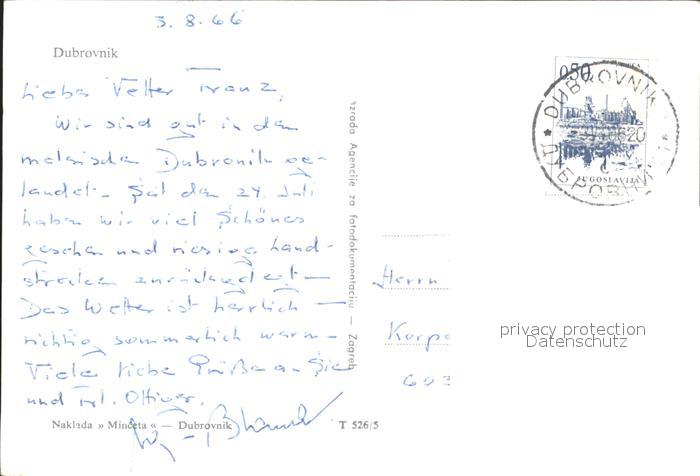 3.8.66
Dubrovnik
Lieber Vetter Franz,
Wir sind gut in dem
malerischen Dubrovnik ge-
landet. Seit dem 24. Juli
haben wir viel Schönes
gesehen und riesige Land-
strecken zurückgelegt —
Das Wetter ist herrlich —
richtig sommerlich warm —
Viele liebe Grüße an Sie
und Frl. Ottiger.
Naklada » Minčeta « — Dubrovnik
T 526/5
Izrada Agencije za fotodokumentaciju — Zagreb
0,50
JUGOSLAVIJA
DUBROVNIK
ДУБРОВНИК
Herrn
Korpo
603
privacy protection
Datenschutz